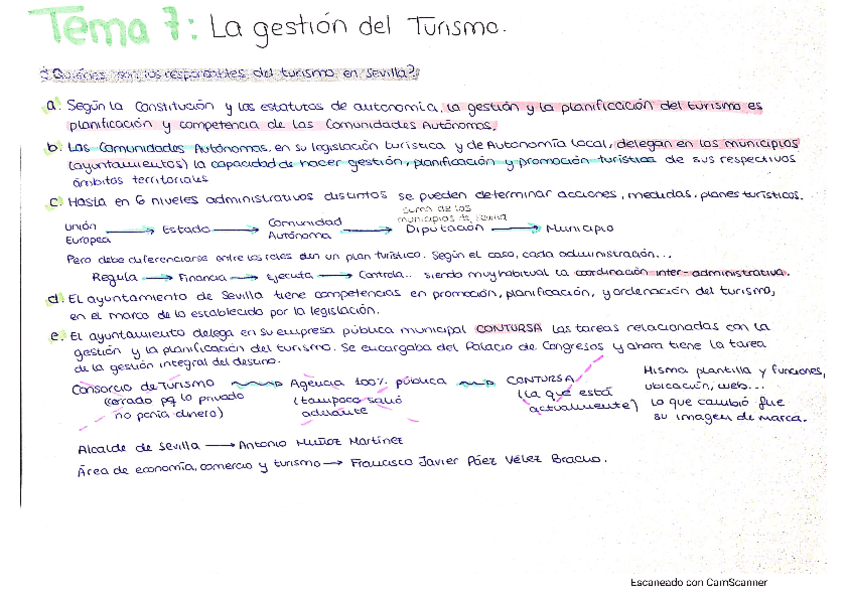 Tema 7: La gestión del Turismo.
¿Quiénes son los responsables del turismo en Sevilla?
a. Según la Constitución y los estatutos de autonomía, la gestión y la planificación del turismo es
planificación y competencia de las Comunidades Autónomas.
b. Las Comunidades Autónomas, en su legislación turística y de Autonomía local, delegan en los municipios
(ayuntamientos) la capacidad de hacer gestión, planificación y promoción turística de sus respectivos
ámbitos territoriales
c. Hasta en 6 niveles administrativos distintos se pueden determinar acciones, medidas, planes turísticos.
Unión Europea → Estado → Comunidad Autónoma → Diputación → Municipio
suma de los
municipios de
Pero debe diferenciarse entre los roles de un plan turístico. Según el caso, cada administración...
Regula → Financia → Ejecuta → Controla... siendo muy habitual la coordinación inter-administrativa.
d. El ayuntamiento de Sevilla tiene competencias en promoción, planificación, y ordenación del turismo,
en el marco de lo establecido por la legislación.
e. El ayuntamiento delega en su empresa pública municipal CONTURSA las tareas relacionadas con la
gestión y la planificación del turismo. Se encargaba del Palacio de Congresos y ahora tiene la tarea
de la gestión integral del destino.
Consorcio de Turismo → Agencia 100% pública → CONTURSA
(cerrado pq lo privado
no ponía dinero)
(tampoco salió
adelante
(la que está
actualmente)
Misma plantilla y funciones,
ubicación, web...
lo que cambió fue
su imagen de marca.
Alcalde de Sevilla → Antonio Muñoz Martínez
Área de economía, comercio y turismo → Francisco Javier Páez Vélez Bracho.
Escaneado con CamScanner